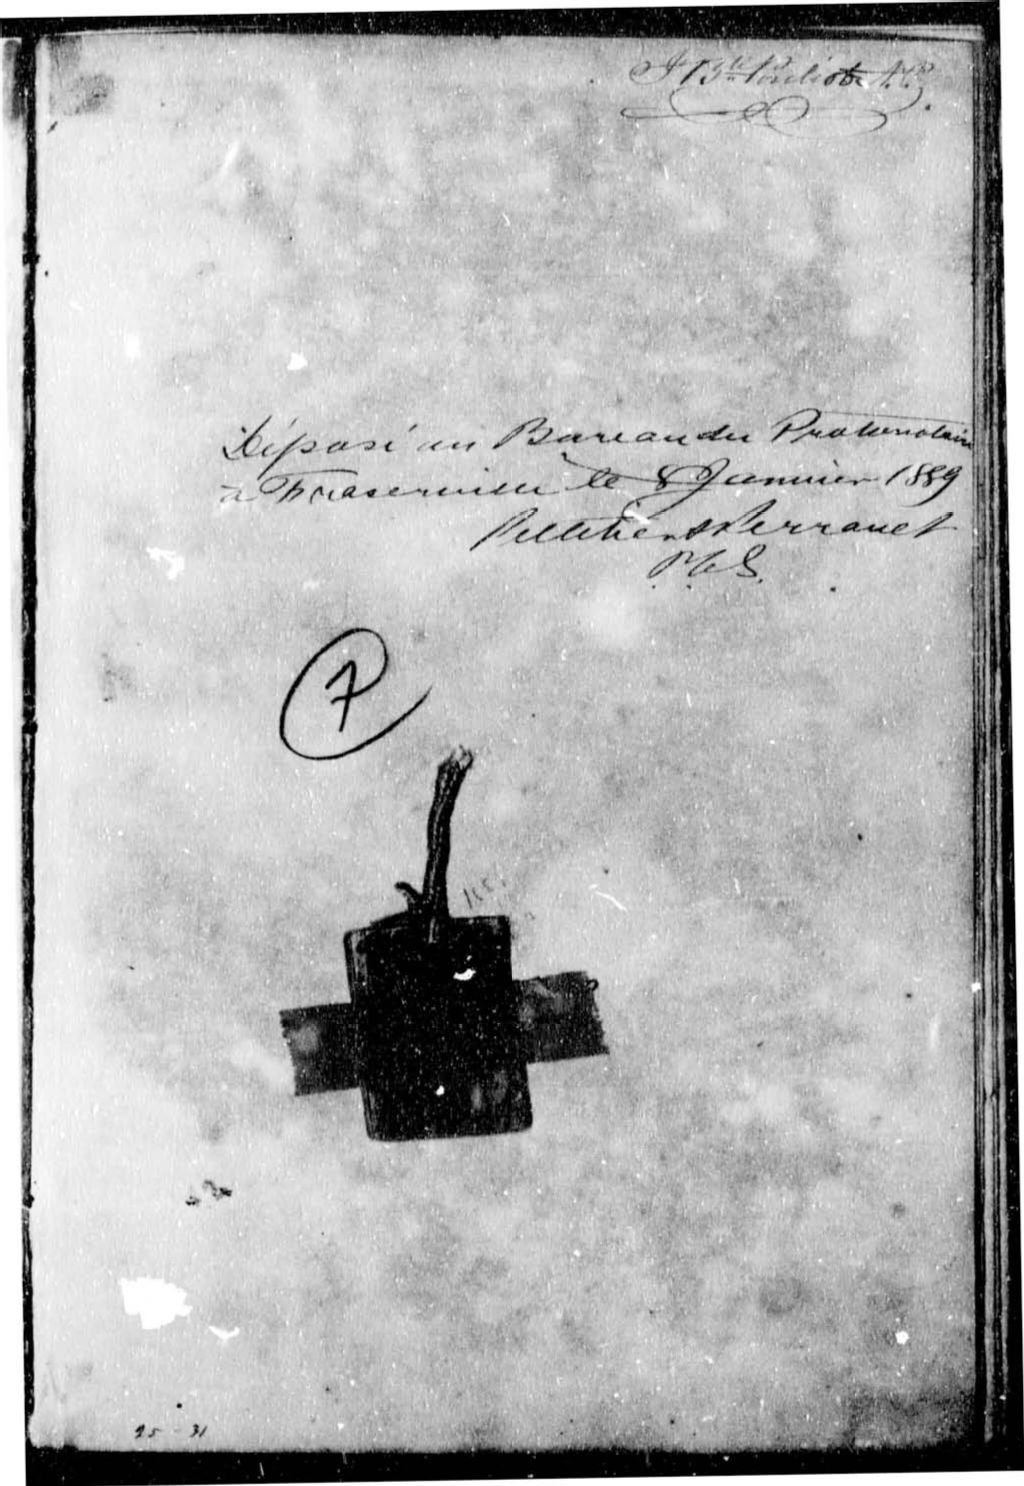 J Bte Pouliot N.P.
Déposé au Bureau du Protonotaire
à Fraserville le 8 Janvier 1889
Pelletier & Perrault
P.C.S.
7
25 - 31